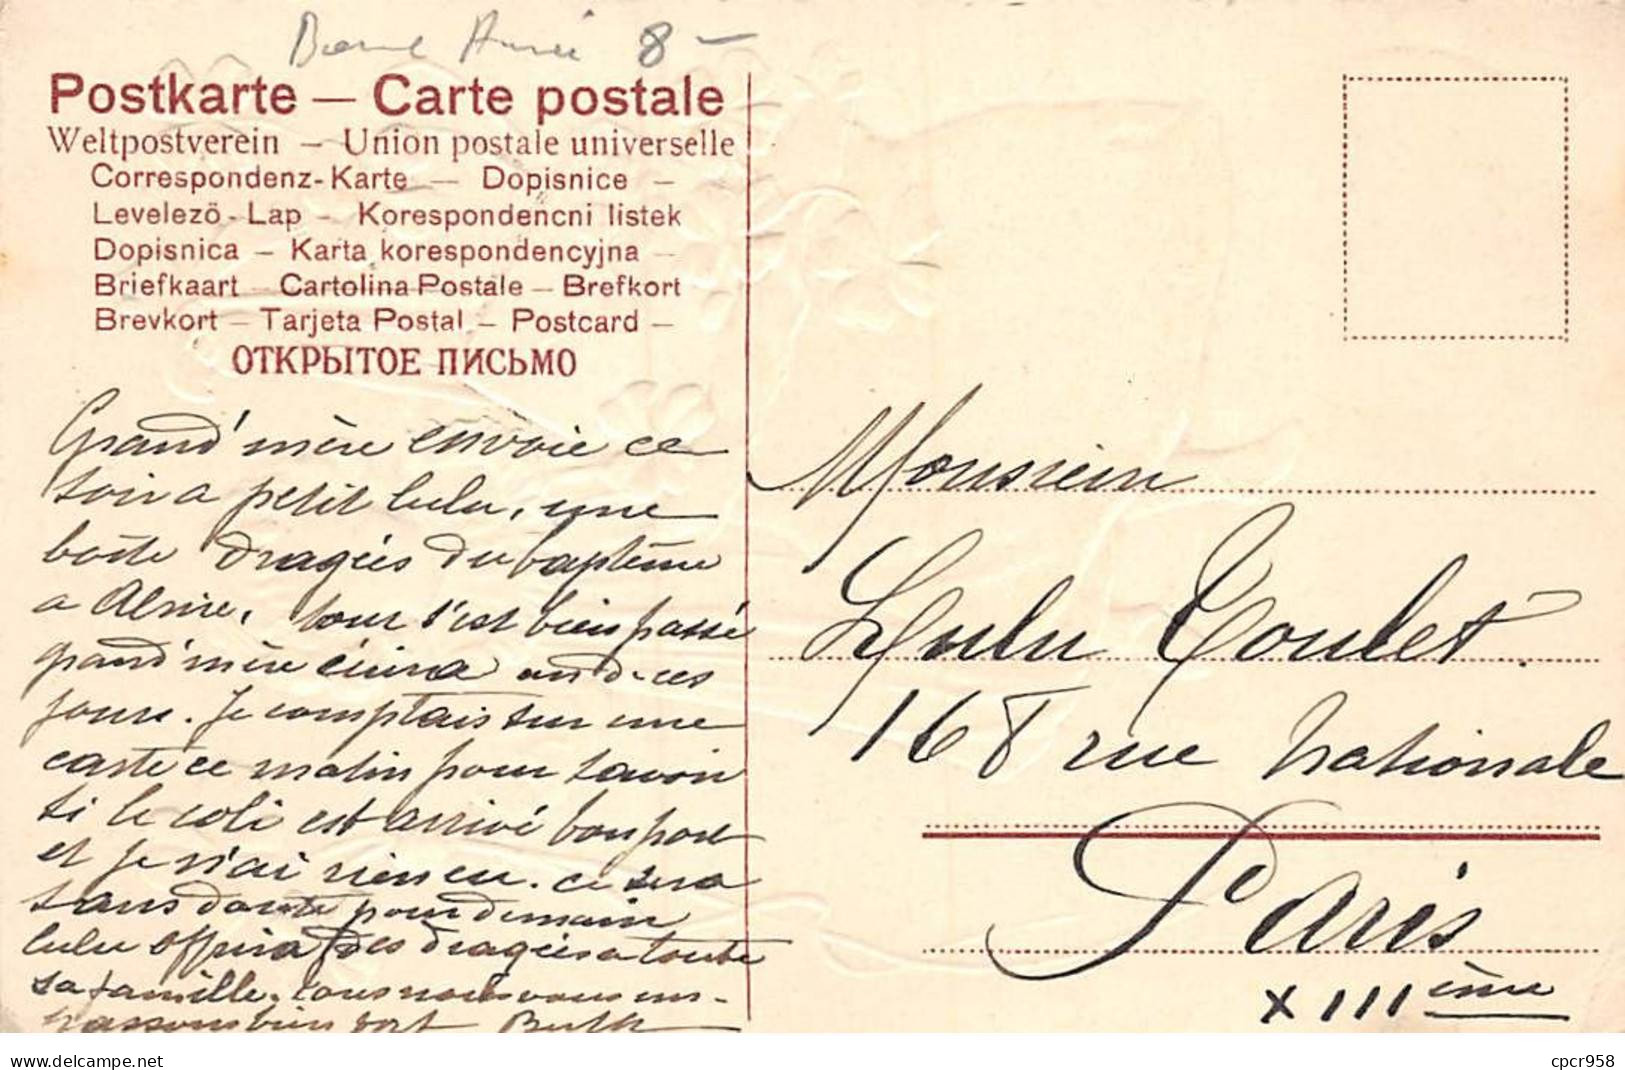 Bonne Année 8 –
Postkarte — Carte postale
Weltpostverein — Union postale universelle
Correspondenz-Karte — Dopisnice —
Levelezö-Lap — Korespondencni listek
Dopisnica — Karta korespondencyjna —
Briefkaart — Cartolina Postale — Brefkort
Brevkort — Tarjeta Postal — Postcard —
ОТКРЫТОЕ ПИСЬМО
Grand'mère envoie ce
soir a petit lulu, une
boite dragées du baptême
a tout s'est bien passé
grand'mère ces
jours. Je comptais sur une
carte ce matin pour savoir
si le coli est arrivé bon port
et je n'ai rien eu. ce sera
sans doute pour demain
lulu offrira des dragées a toute
sa famille. tous nous vous em-
brassons bien fort Berthe
Monsieur
Lulu Toulet
168 rue Nationale
Paris
XIII ème
www.delcampe.net
cpcr958